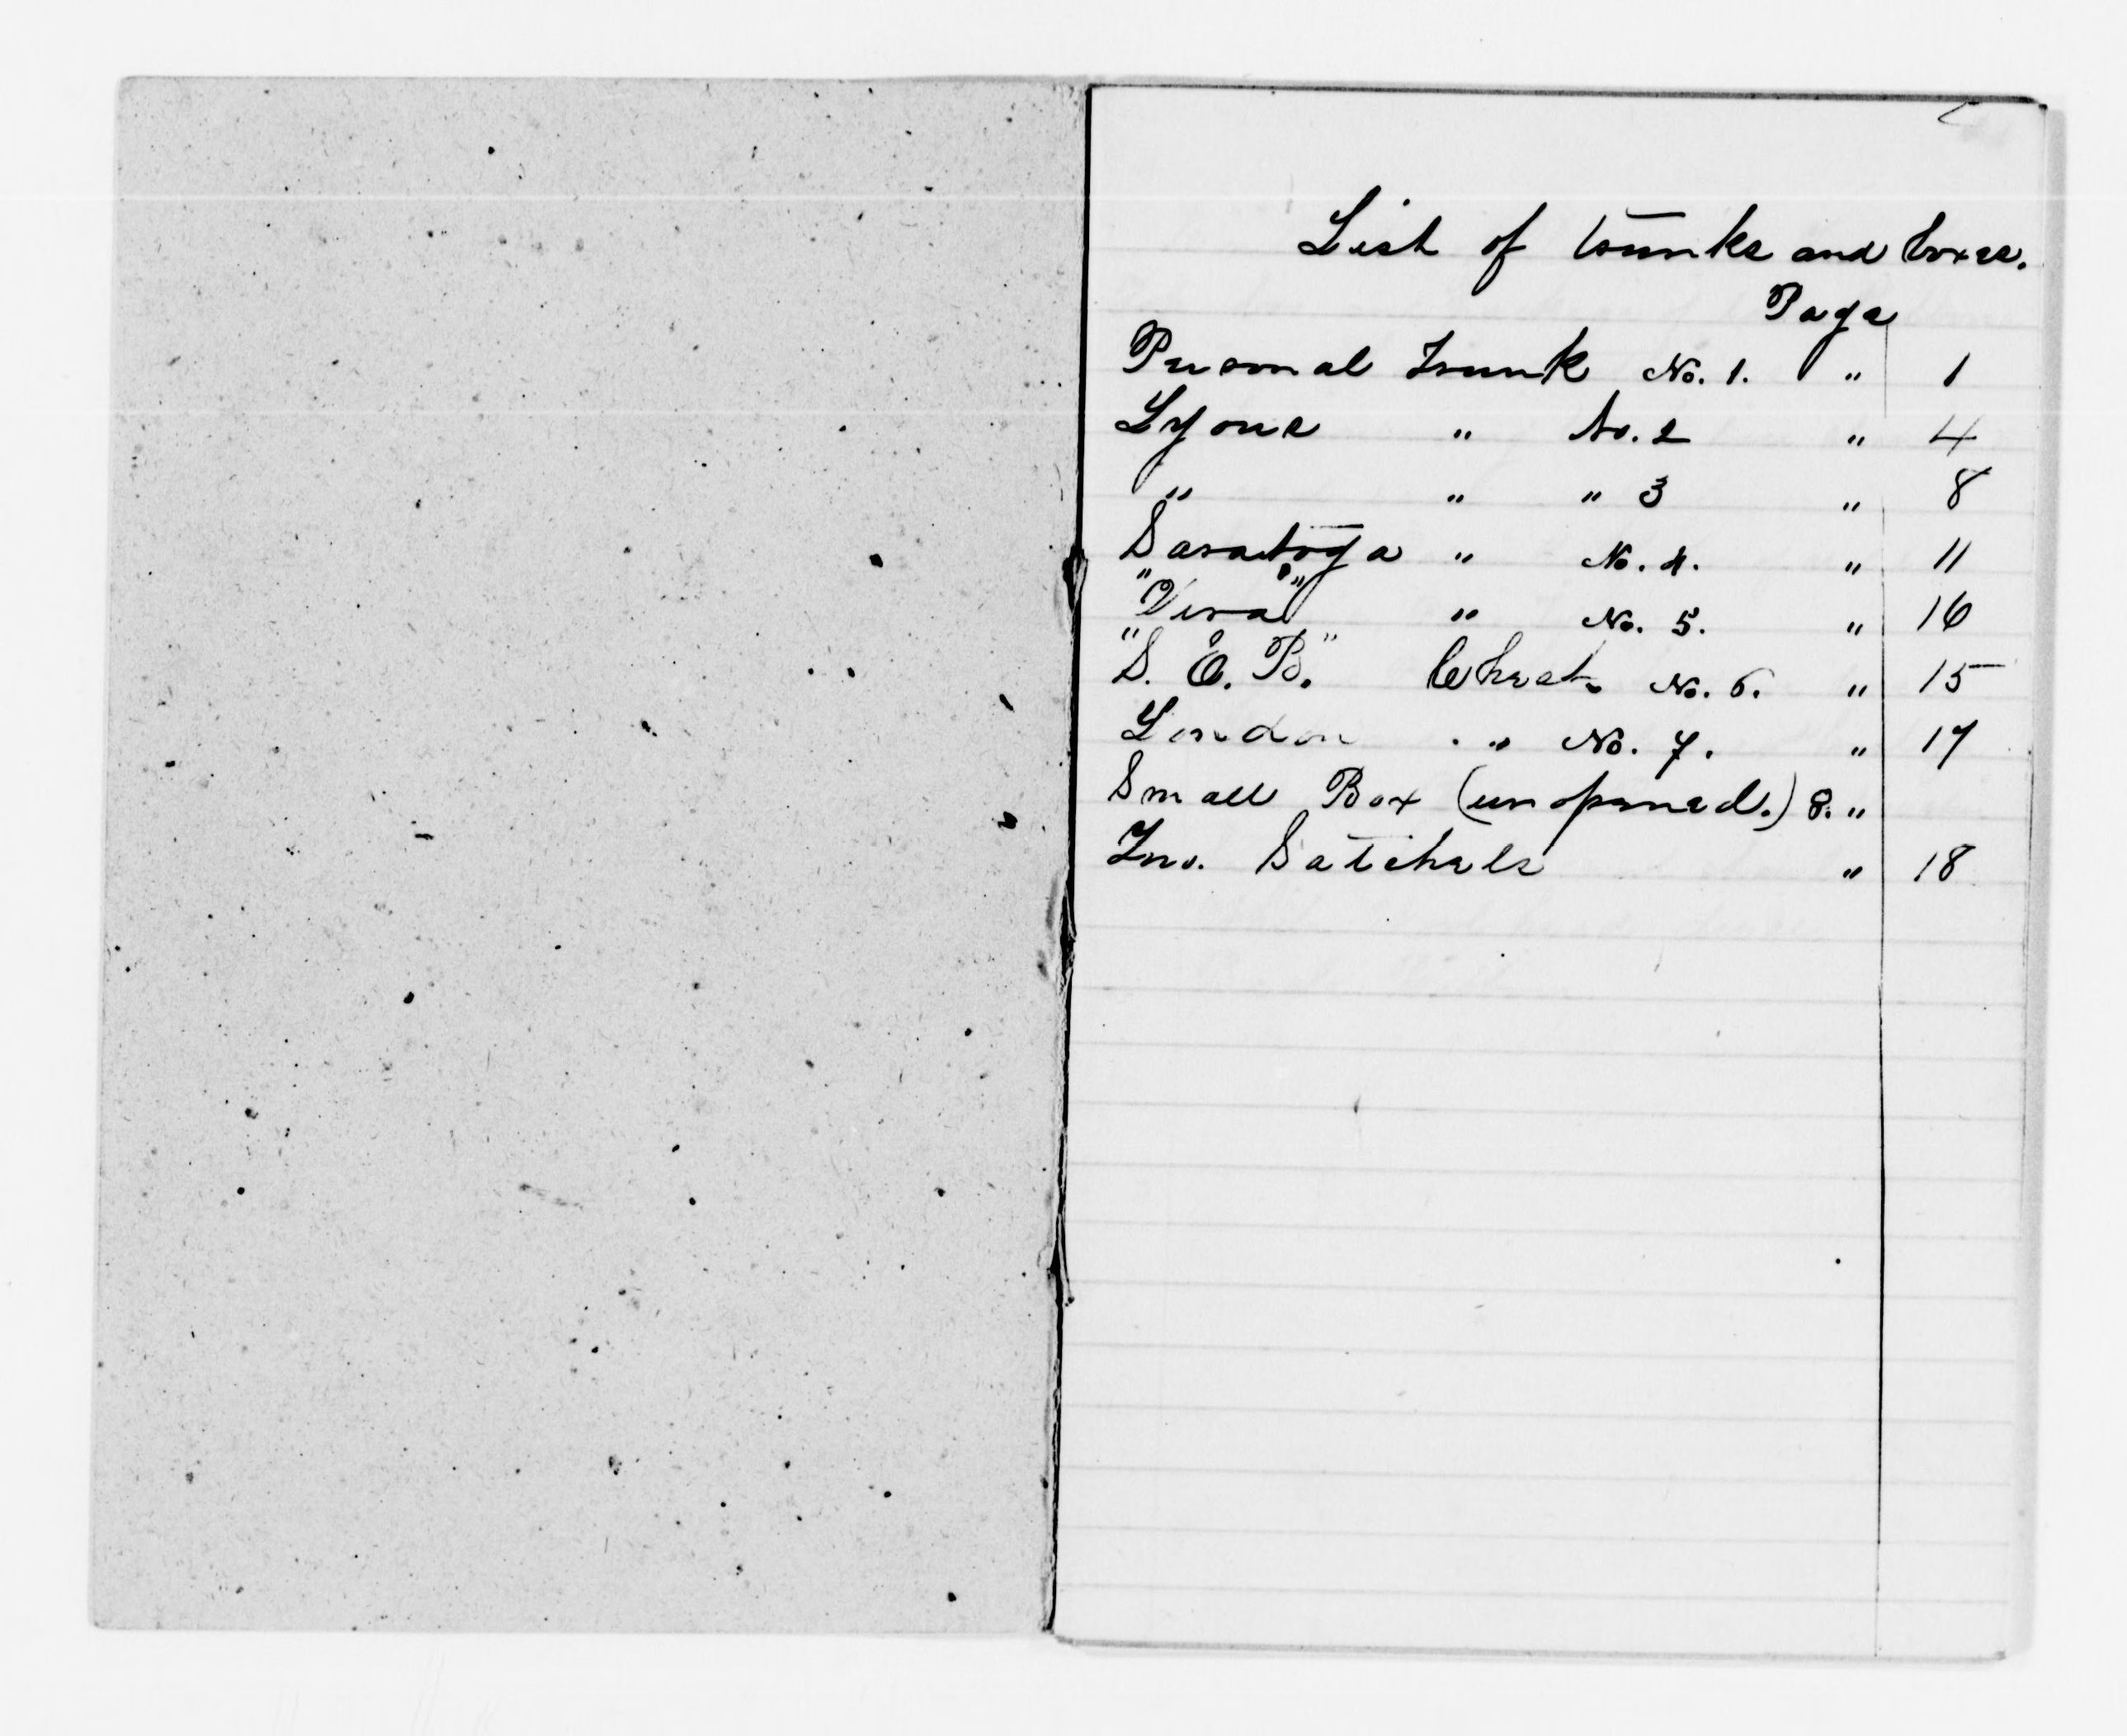 List of trunks and boxes.
Page
Personal Trunk No. 1. " 1
Lyons " No. 2 " 4
" " " 3 " 8
Saratoga " No. 4. " 11
"Vera" " No. 5. " 16
"S. E. B." Chest No. 6. " 15
London " No. 7. " 17
Small Box (unopened.) 8. "
Two. Satchels " 18